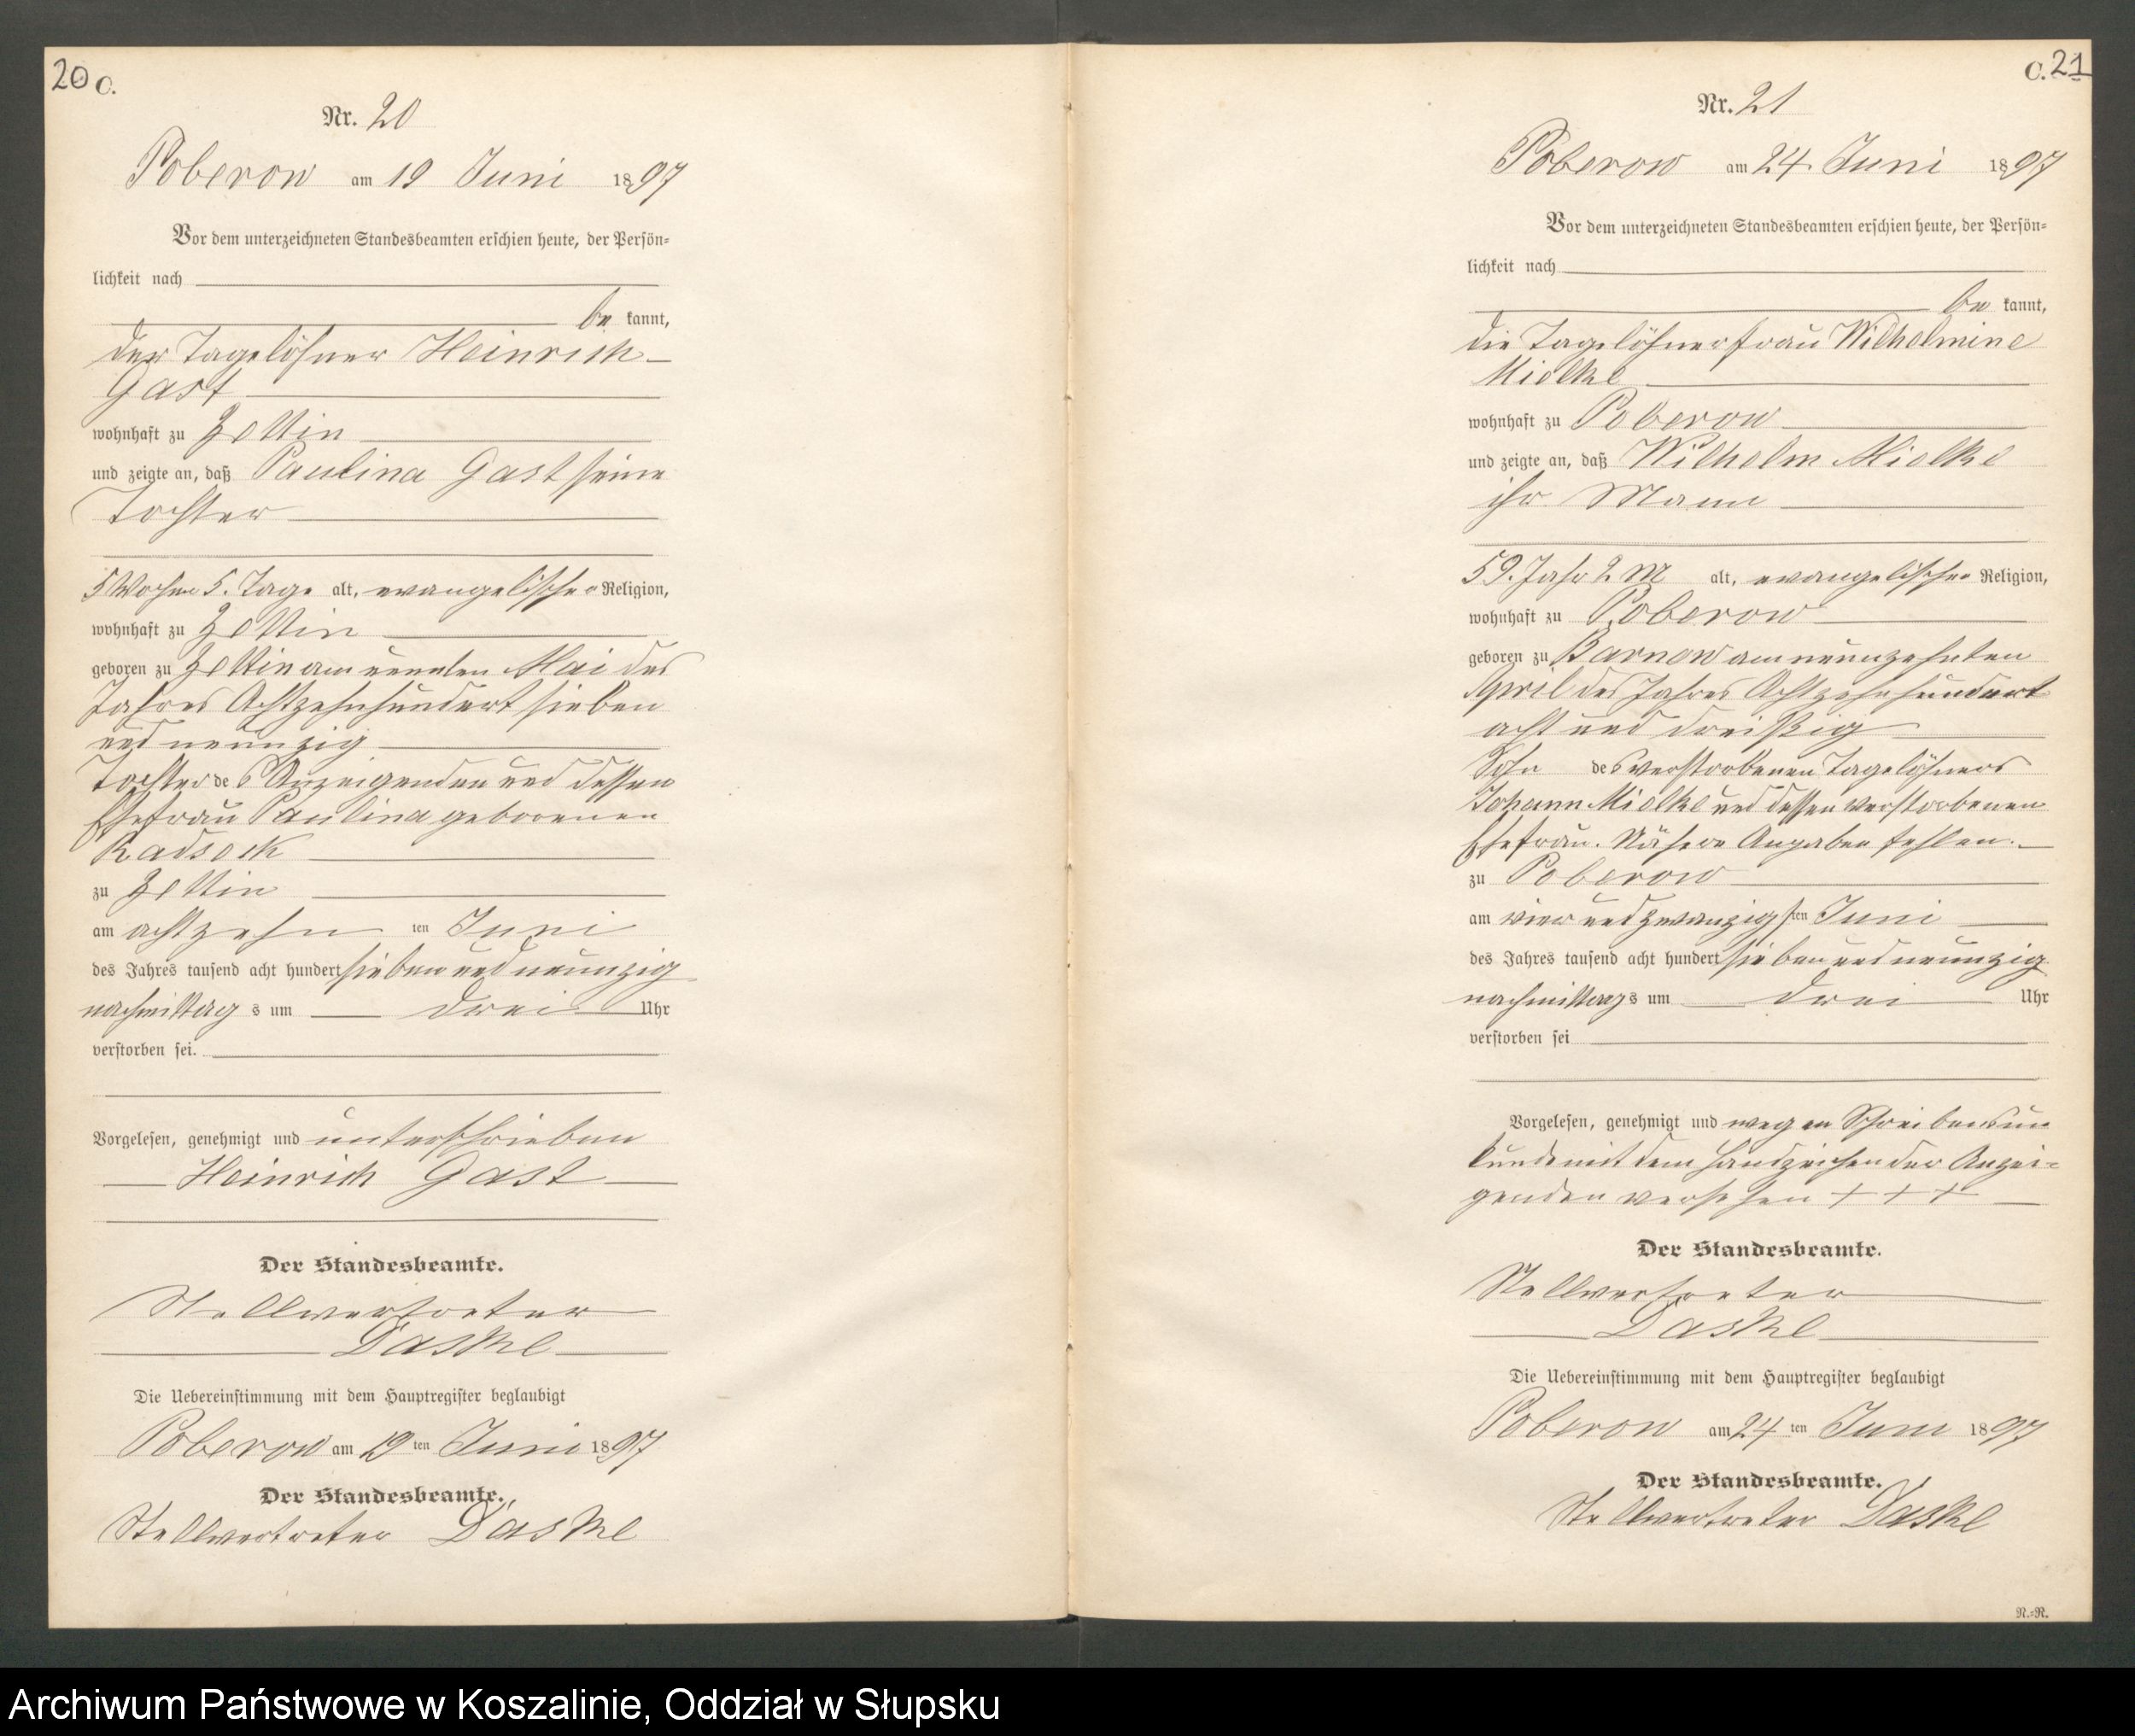 20 C.
Nr. 20
Poberow am 19 Juni 1897
Vor dem unterzeichneten Standesbeamten erschien heute, der Persön=
lichkeit nach
be kannt,
der Tagelöhner Heinrich
Gast
wohnhaft zu Zettin
und zeigte an, daß Paulina Gast seine
Tochter
5 Wochen 5. Tage alt, evangelischer Religion,
wohnhaft zu Zettin
geboren zu Zettin am neunten Mai des
Jahres Achtzehnhundert sieben
und neunzig
Tochter des Anzeigenden und dessen
Ehefrau Paulina geborenen
Radsock
zu Zettin
am achtzehn ten Juni
des Jahres tausend acht hundert sieben und neunzig
nachmittag s um drei Uhr
verstorben sei.
Vorgelesen, genehmigt und unterschrieben
Heinrich Gast
Der Standesbeamte.
Stellvertreter
Daske
Die Uebereinstimmung mit dem Hauptregister beglaubigt
Poberow am 19 ten Juni 1897
Der Standesbeamte.
Stellvertreter Daske
C. 21
Nr. 21
Poberow am 24. Juni 1897
Vor dem unterzeichneten Standesbeamten erschien heute, der Persön=
lichkeit nach
be kannt,
die Tagelöhnerfrau Wilhelmine
Mielke
wohnhaft zu Poberow
und zeigte an, daß Wilhelm Mielke
ihr Mann
59. Jahr 2 M alt, evangelischer Religion,
wohnhaft zu Poberow
geboren zu Barnow am neunzehnten
April des Jahres Achtzehnhundert
acht und dreißig
Sohn des verstorbenen Tagelöhners
Johann Mielke und dessen verstorbenen
Ehefrau. Nähere Angaben fehlen.
zu Poberow
am vier und zwanzigsten Juni
des Jahres tausend acht hundert sieben und neunzig
nachmittags um drei Uhr
verstorben sei
Vorgelesen, genehmigt und wegen Schreibensun
kunde mit dem Handzeichen der Anzei=
genden versehen + + +
Der Standesbeamte.
Stellvertreter
Daske
Die Uebereinstimmung mit dem Hauptregister beglaubigt
Poberow am 24 ten Juni 1897
Der Standesbeamte.
Stellvertreter Daske
R.=R.
Archiwum Państwowe w Koszalinie, Oddział w Słupsku